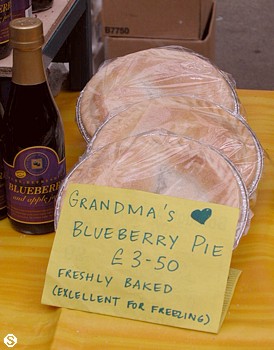 B7750
BLUEBERRY
and apple
GRANDMA'S
BLUEBERRY PIE
£3-50
FRESHLY BAKED
(EXLELLENT FOR FREEZING)